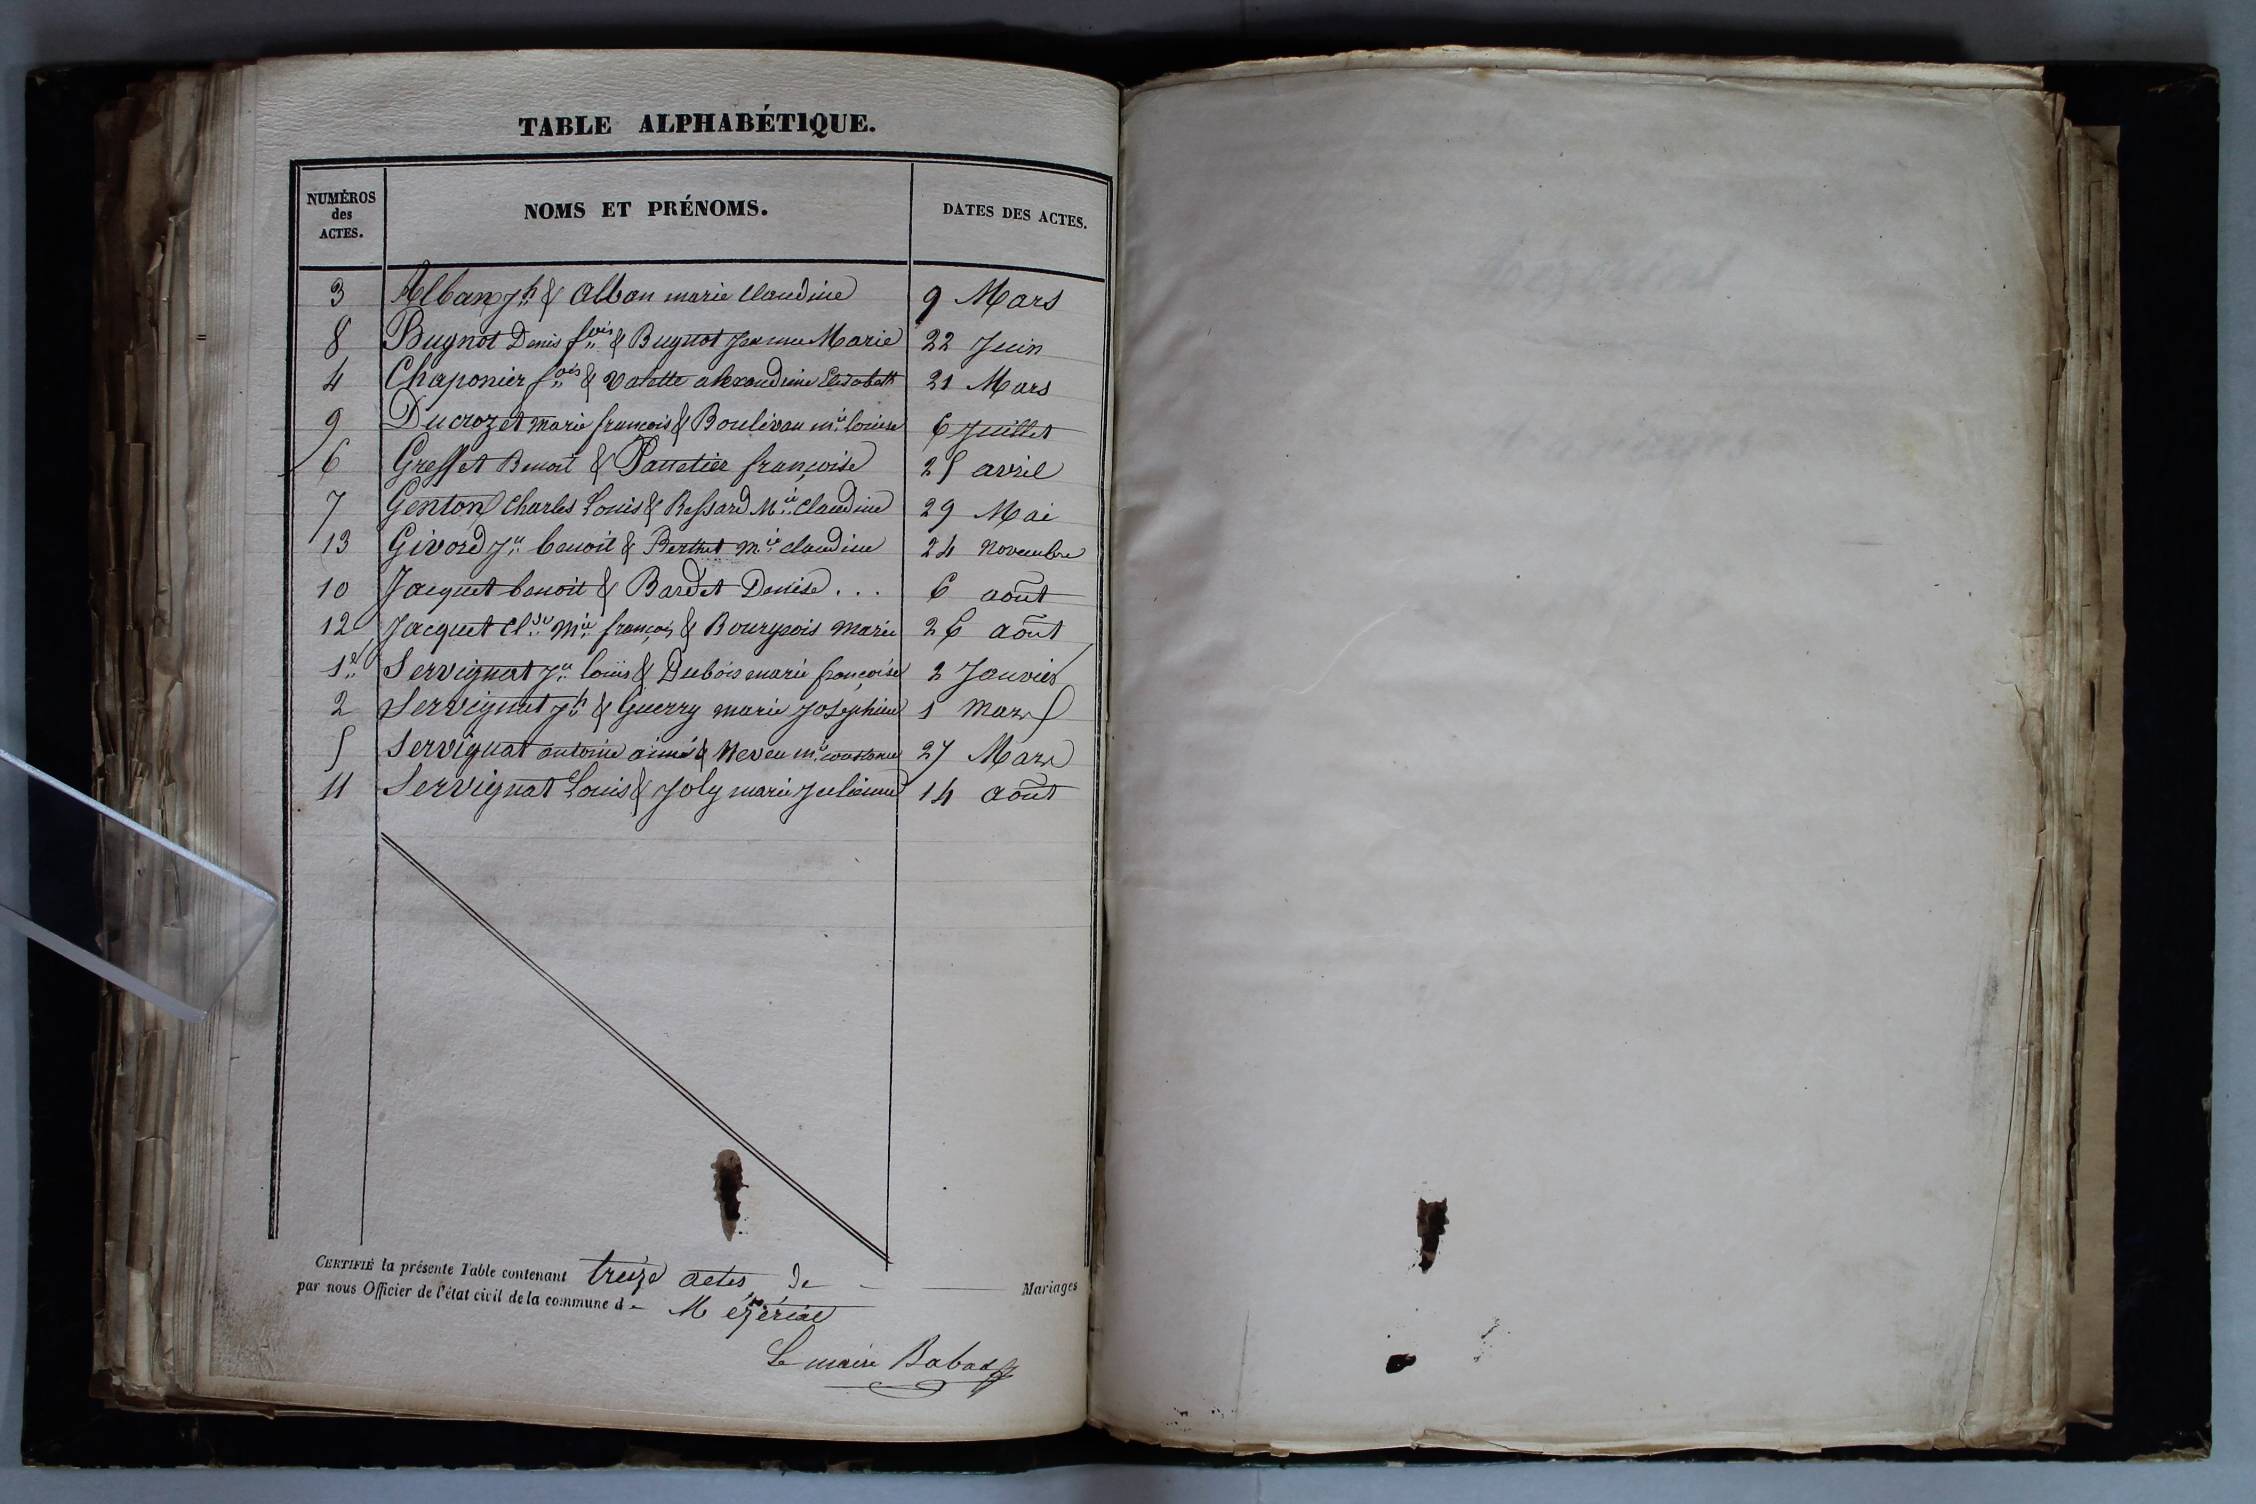 TABLE ALPHABÉTIQUE.
NUMÉROS des ACTES. NOMS ET PRÉNOMS. DATES DES ACTES.
3 Alban Jh & Alban marie Claudine 9 Mars
8 Bugnot Denis fois & Bugnot Jeanne Marie 22 Juin
4 Chaponier fois & Valette alexandrine Elisabeth 21 Mars
9 Ducrozet marie françois & mie louise 6 Juillet
6 Greffet Benoit & françoise 25 avril
7 Genton Charles Louis & Bessard Mie Claudine 29 Mai
13 Givord Jn benoit & Berthet mie claudine 24 Novembre
10 Jacquet benoit & Bardet Denise . . . 6 août
12 Jacquet Clde Mie françois & Bourgeois Marie 26 août
1er Servignat Jn louis & Dubois marie françoise 2 Janvier
2 Servignat Jh & Guerry marie Josephine 1 Mars
5 Servignat antoine aimé & Neveu me constance 27 Mars
11 Servignat Louis & Joly marie Julienne 14 août
CERTIFIÉ la présente Table contenant treize actes de Mariages
par nous Officier de l'état civil de la commune de Mézériat
Le maire Babad